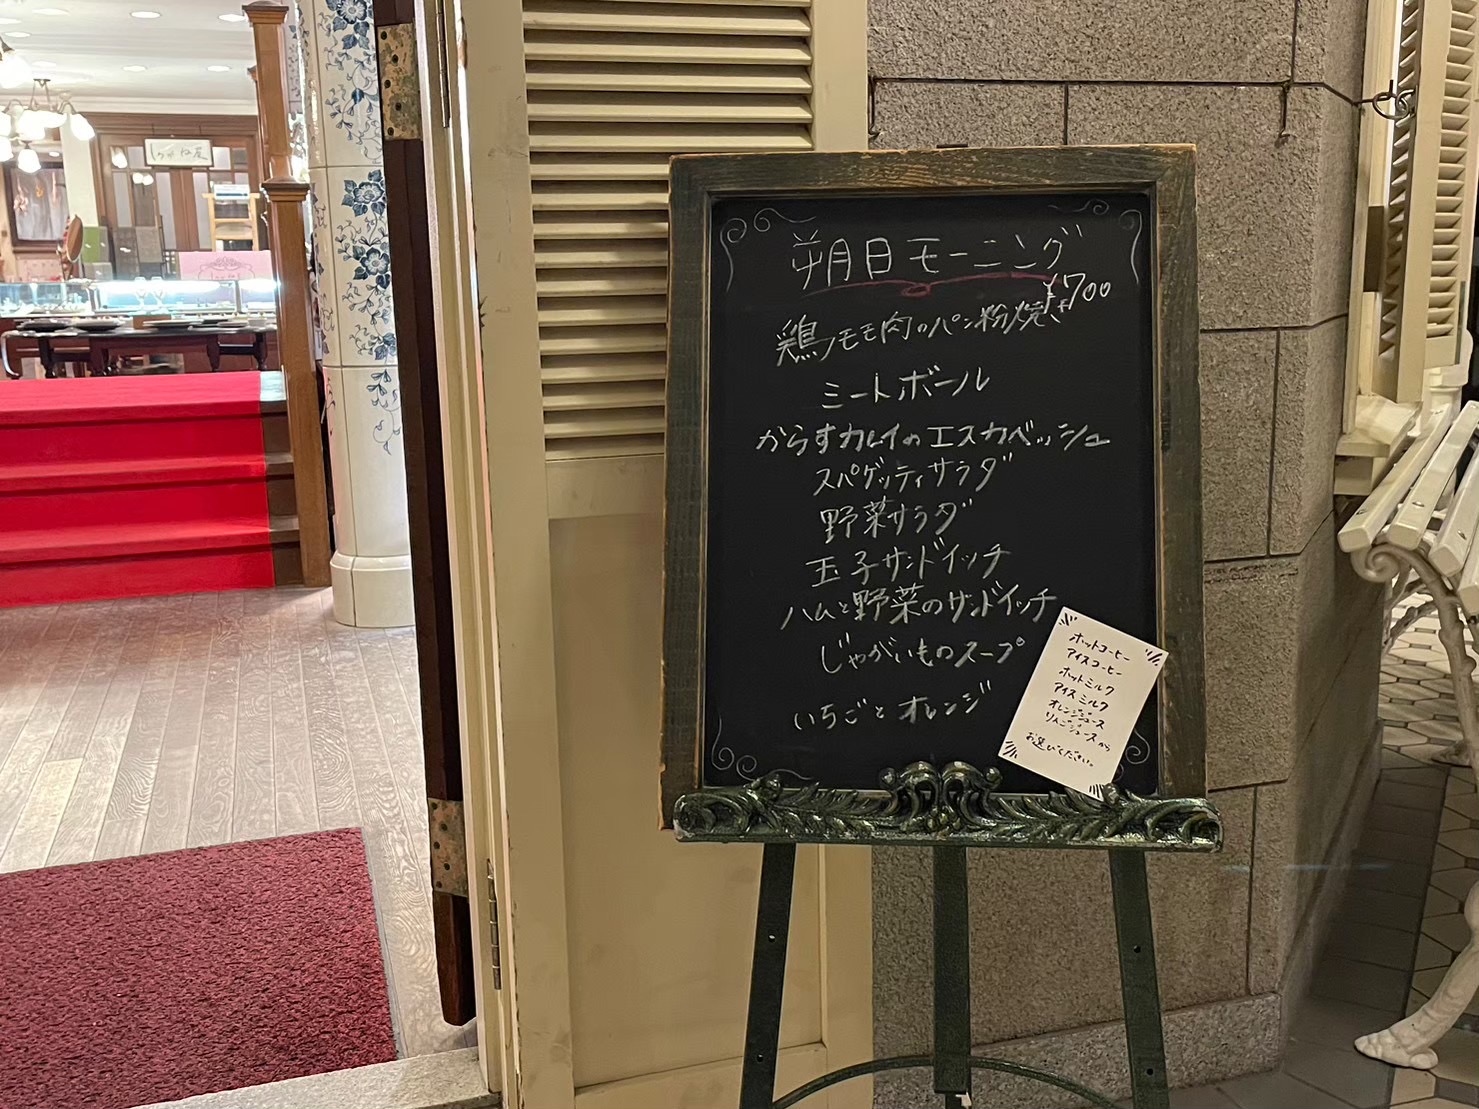 朔日モーニング
¥700
鶏モモ肉のパン粉焼き
ミートボール
からすカレイのエスカベッシュ
スパゲッティサラダ
野菜サラダ
玉子サンドイッチ
ハムと野菜のサンドイッチ
じゃがいものスープ
いちごとオレンジ
ホットコーヒー
アイスコーヒー
ホットミルク
アイスミルク
オレンジジュース
りんごジュースから
お選びください。